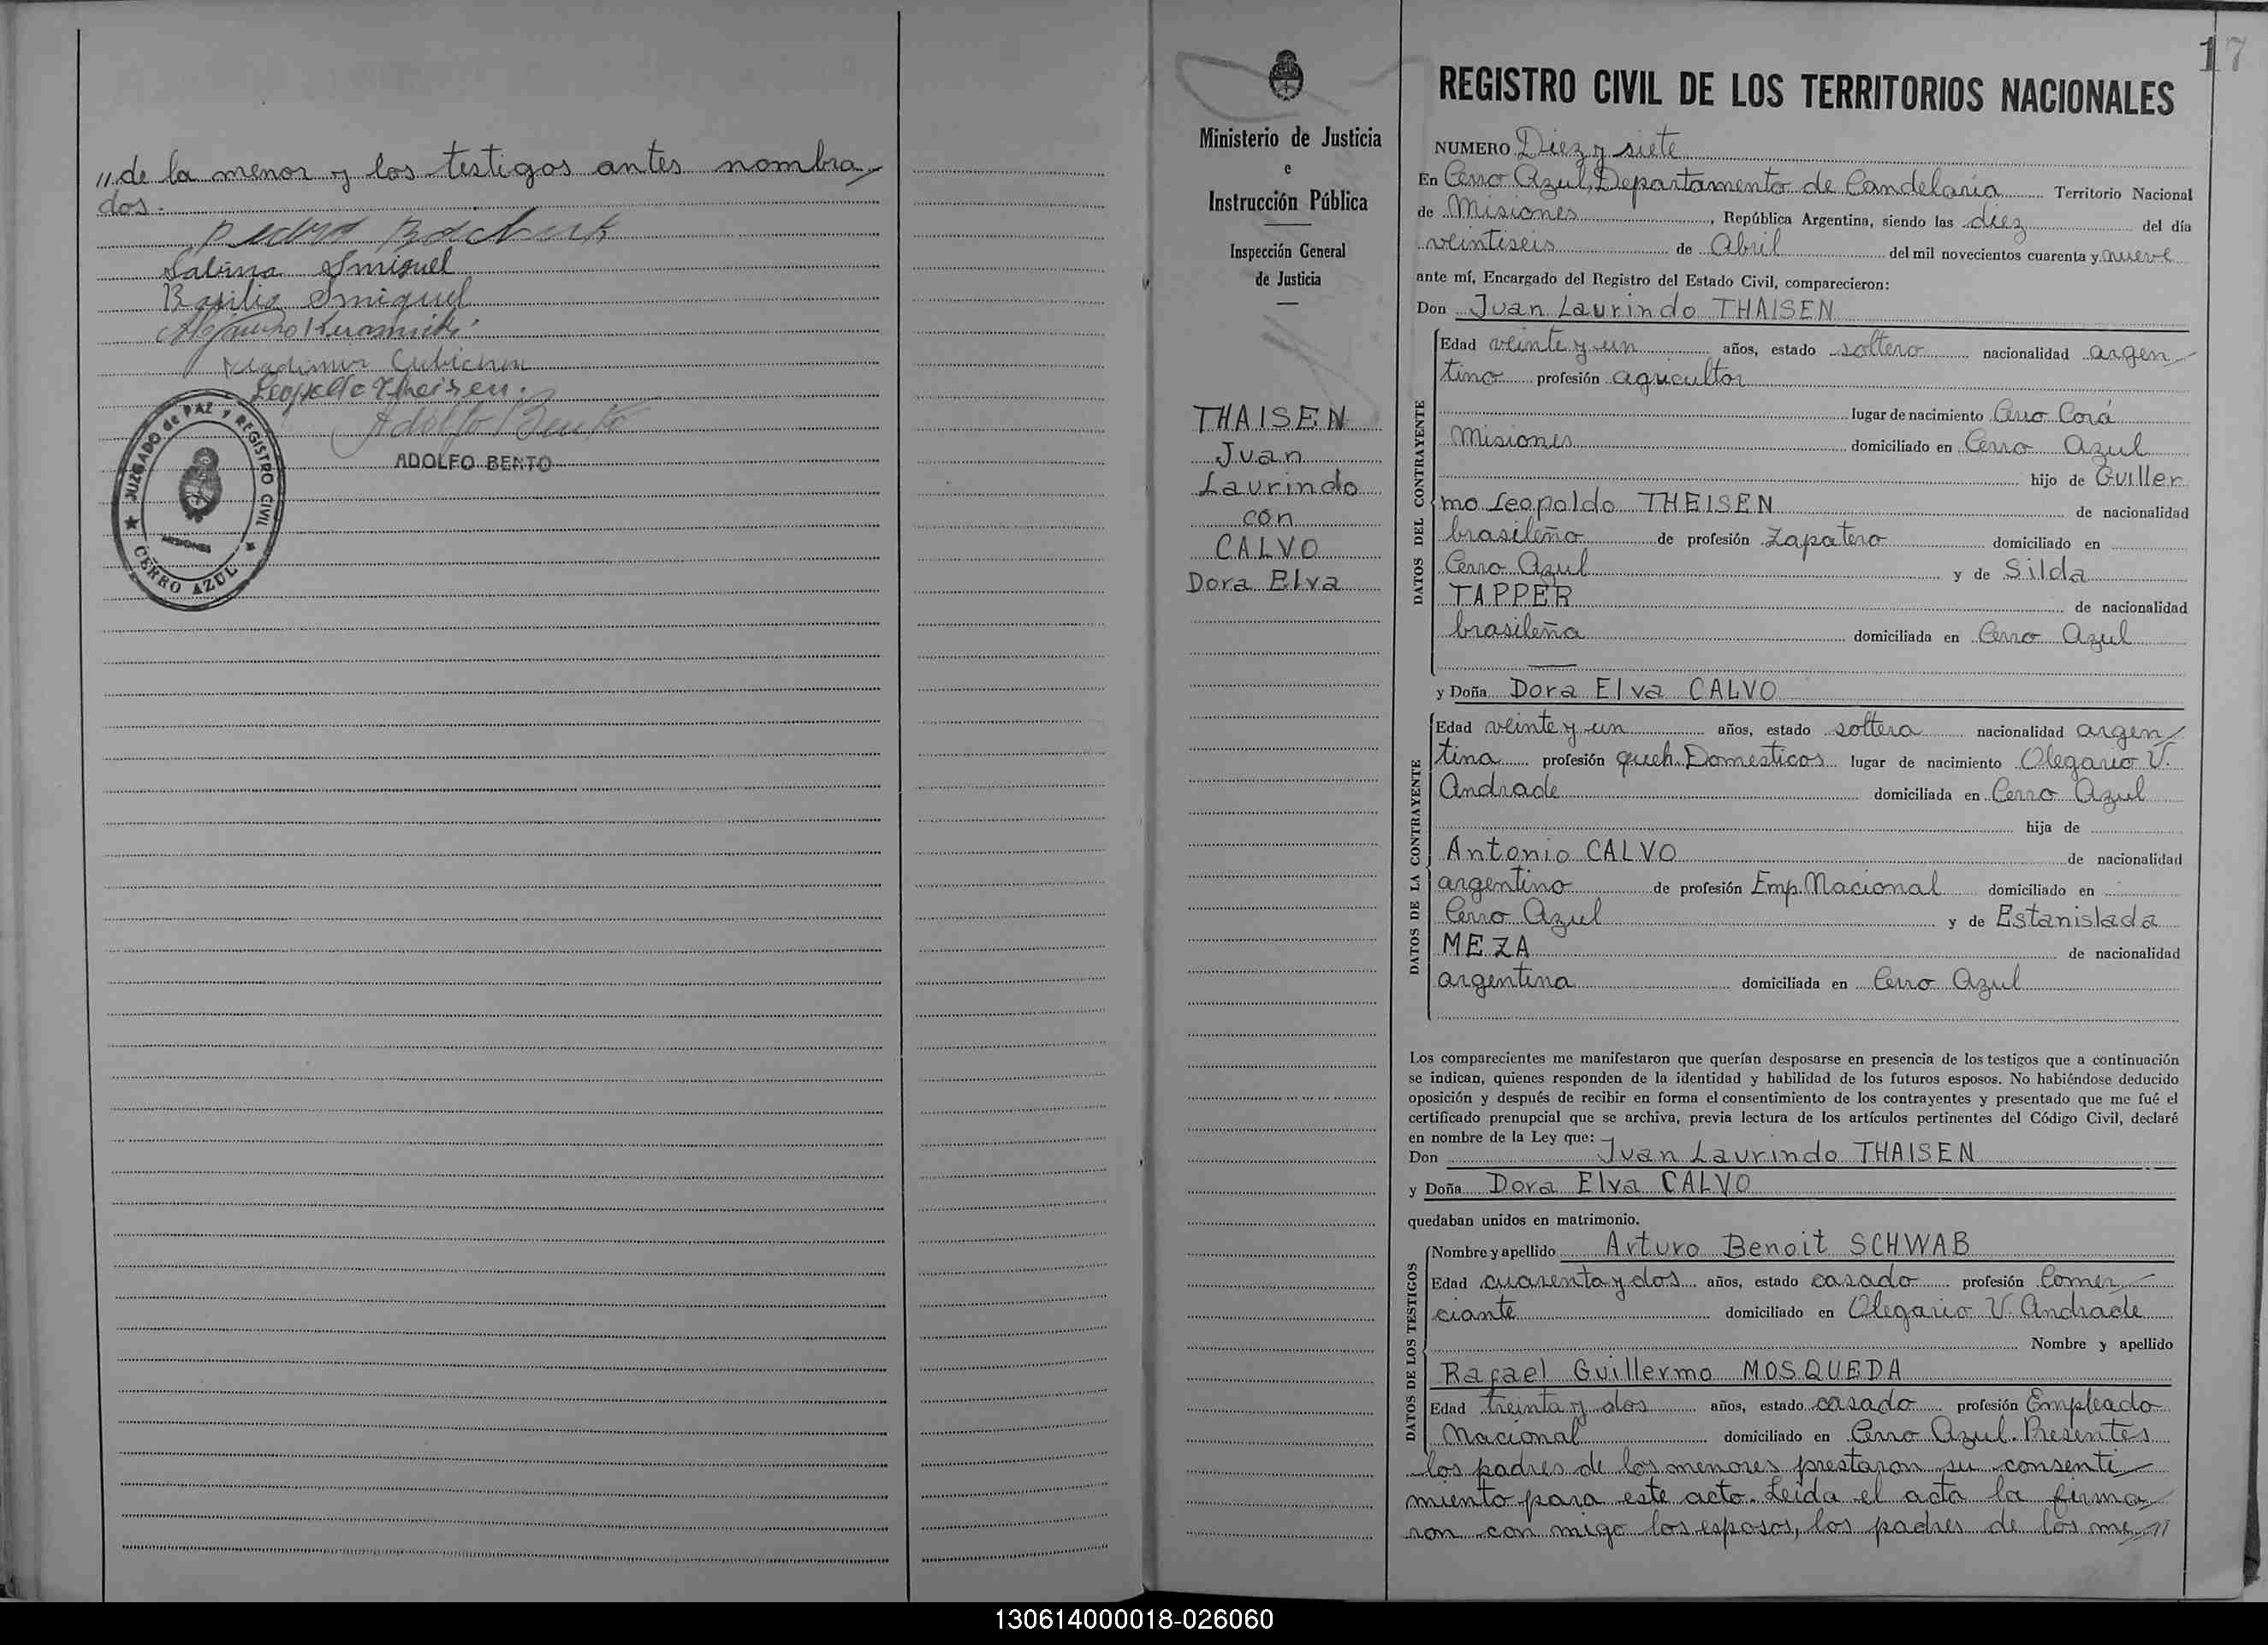 " de la menor y los testigos antes nombra-
dos.-
Sabina Smiguel
Basilio Smiguel
Leopoldo Theisen.
Adolfo Bento
ADOLFO BENTO
JUZGADO de PAZ y REGISTRO CIVIL
MISIONES
CERRO AZUL
17
Ministerio de Justicia
e
Instrucción Pública
Inspección General
de Justicia
THAISEN
Juan
Laurindo
con
CALVO
Dora Elva
REGISTRO CIVIL DE LOS TERRITORIOS NACIONALES
NUMERO Diez y siete
En Cerro Azul, Departamento de Candelaria Territorio Nacional
de Misiones, República Argentina, siendo las diez del día
veintiseis de Abril del mil novecientos cuarenta y nueve
ante mí, Encargado del Registro del Estado Civil, comparecieron:
Don Juan Laurindo THAISEN
DATOS DEL CONTRAYENTE
Edad veinte y un años, estado soltero nacionalidad argen-
tino profesión agricultor
lugar de nacimiento Cerro Corá
Misiones domiciliado en Cerro Azul
hijo de Guiller
mo Leopoldo THEISEN de nacionalidad
brasileño de profesión Zapatero domiciliado en
Cerro Azul y de Silda
TAPPER de nacionalidad
brasileña domiciliada en Cerro Azul
y Doña Dora Elva CALVO
DATOS DE LA CONTRAYENTE
Edad veinte y un años, estado soltera nacionalidad argen-
tina profesión queh. Domesticos lugar de nacimiento Olegario V.
Andrade domiciliada en Cerro Azul
hija de
Antonio CALVO de nacionalidad
argentino de profesión Emp. Nacional domiciliado en
Cerro Azul y de Estanislada
MEZA de nacionalidad
argentina domiciliada en Cerro Azul
Los comparecientes me manifestaron que querían desposarse en presencia de los testigos que a continuación
se indican, quienes responden de la identidad y habilidad de los futuros esposos. No habiéndose deducido
oposición y después de recibir en forma el consentimiento de los contrayentes y presentado que me fué el
certificado prenupcial que se archiva, previa lectura de los artículos pertinentes del Código Civil, declaré
en nombre de la Ley que:
Don Juan Laurindo THAISEN
y Doña Dora Elva CALVO
quedaban unidos en matrimonio.
DATOS DE LOS TESTIGOS
Nombre y apellido Arturo Benoit SCHWAB
Edad cuarenta y dos años, estado casado profesión Comer-
ciante domiciliado en Olegario V. Andrade
Nombre y apellido
Rafael Guillermo MOSQUEDA
Edad treinta y dos años, estado casado profesión Empleado
Nacional domiciliado en Cerro Azul. Presentes
los padres de los menores prestaron su consenti-
miento para este acto. Leida el acta la firma-
ron con migo los esposos, los padres de los me-"
130614000018-026060